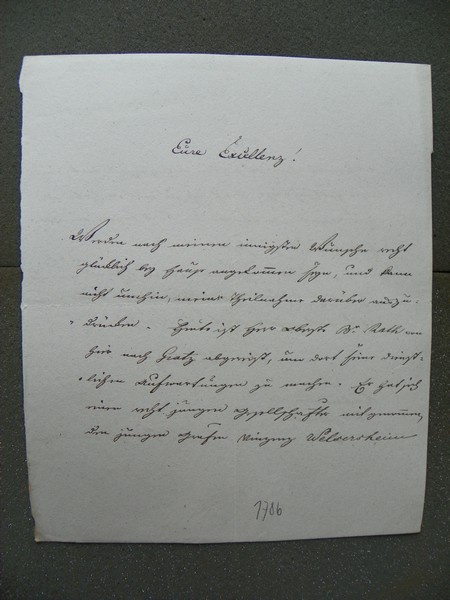 Eure Exzellenz!
Werden nach meinen innigsten Wünsche recht
glücklich bey Hause angekommen seyn, und kann
nicht umhin, meine Theilnahme darüber auszu-
drücken. Heute ist Herr Oberst B. Rath von
hier nach Gratz abgereist, um dort seine dienst-
lichen Aufwartungen zu machen. Er hat sich
einen recht jungen Gesellschafter mitgenommen,
den jungen Grafen Vinzenz Welsersheim
1706